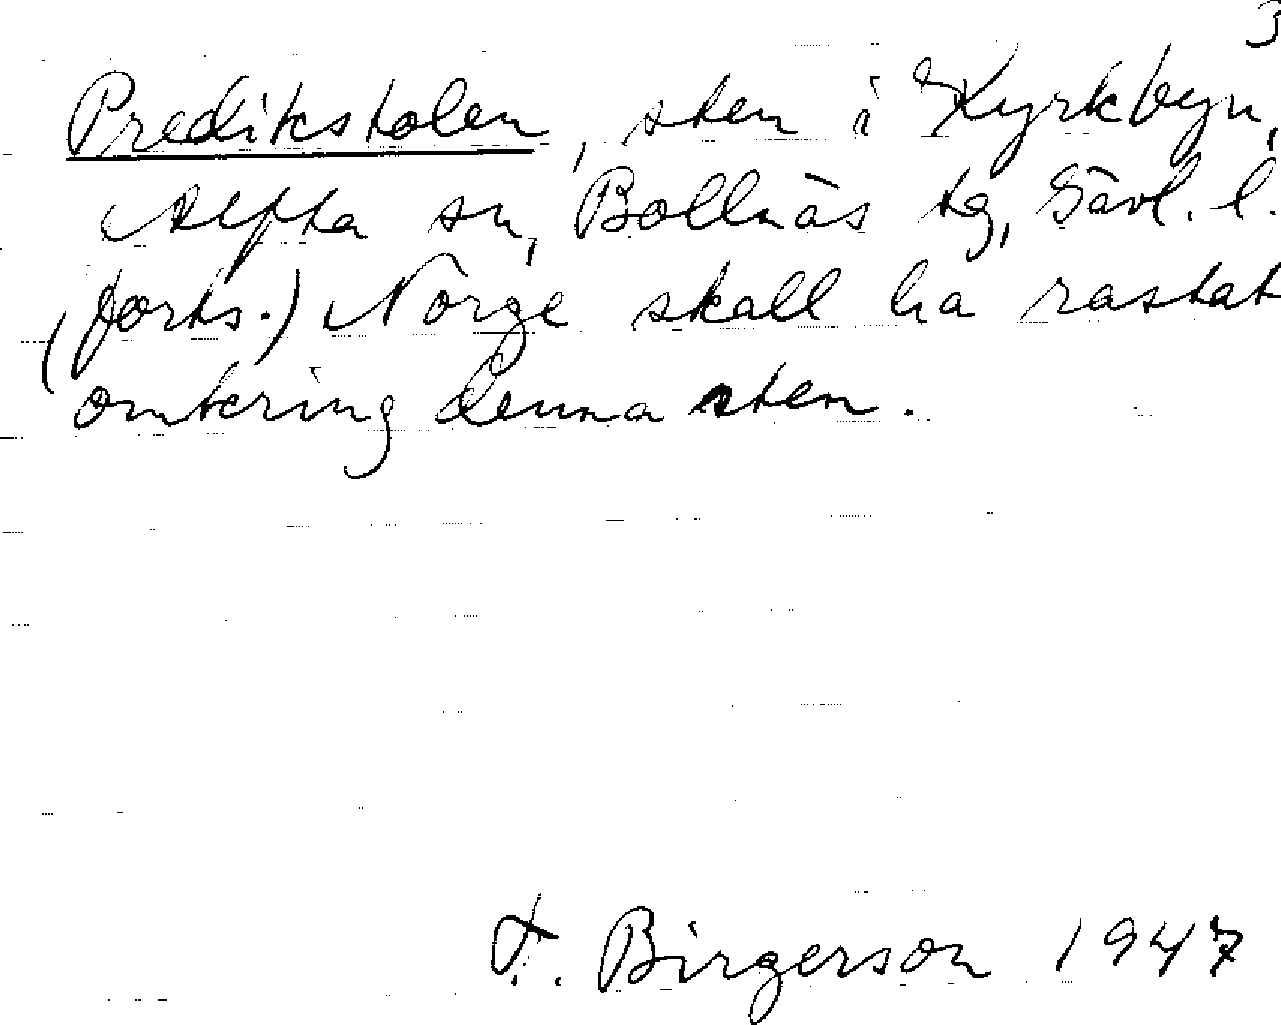 3
Predikstolen, sten i Kyrkbyn,
Alfta sn, Bollnäs tg, Gävl. l.
(forts.) Norge skall ha rastat
omkring denna sten.
F. Birgerson 1947